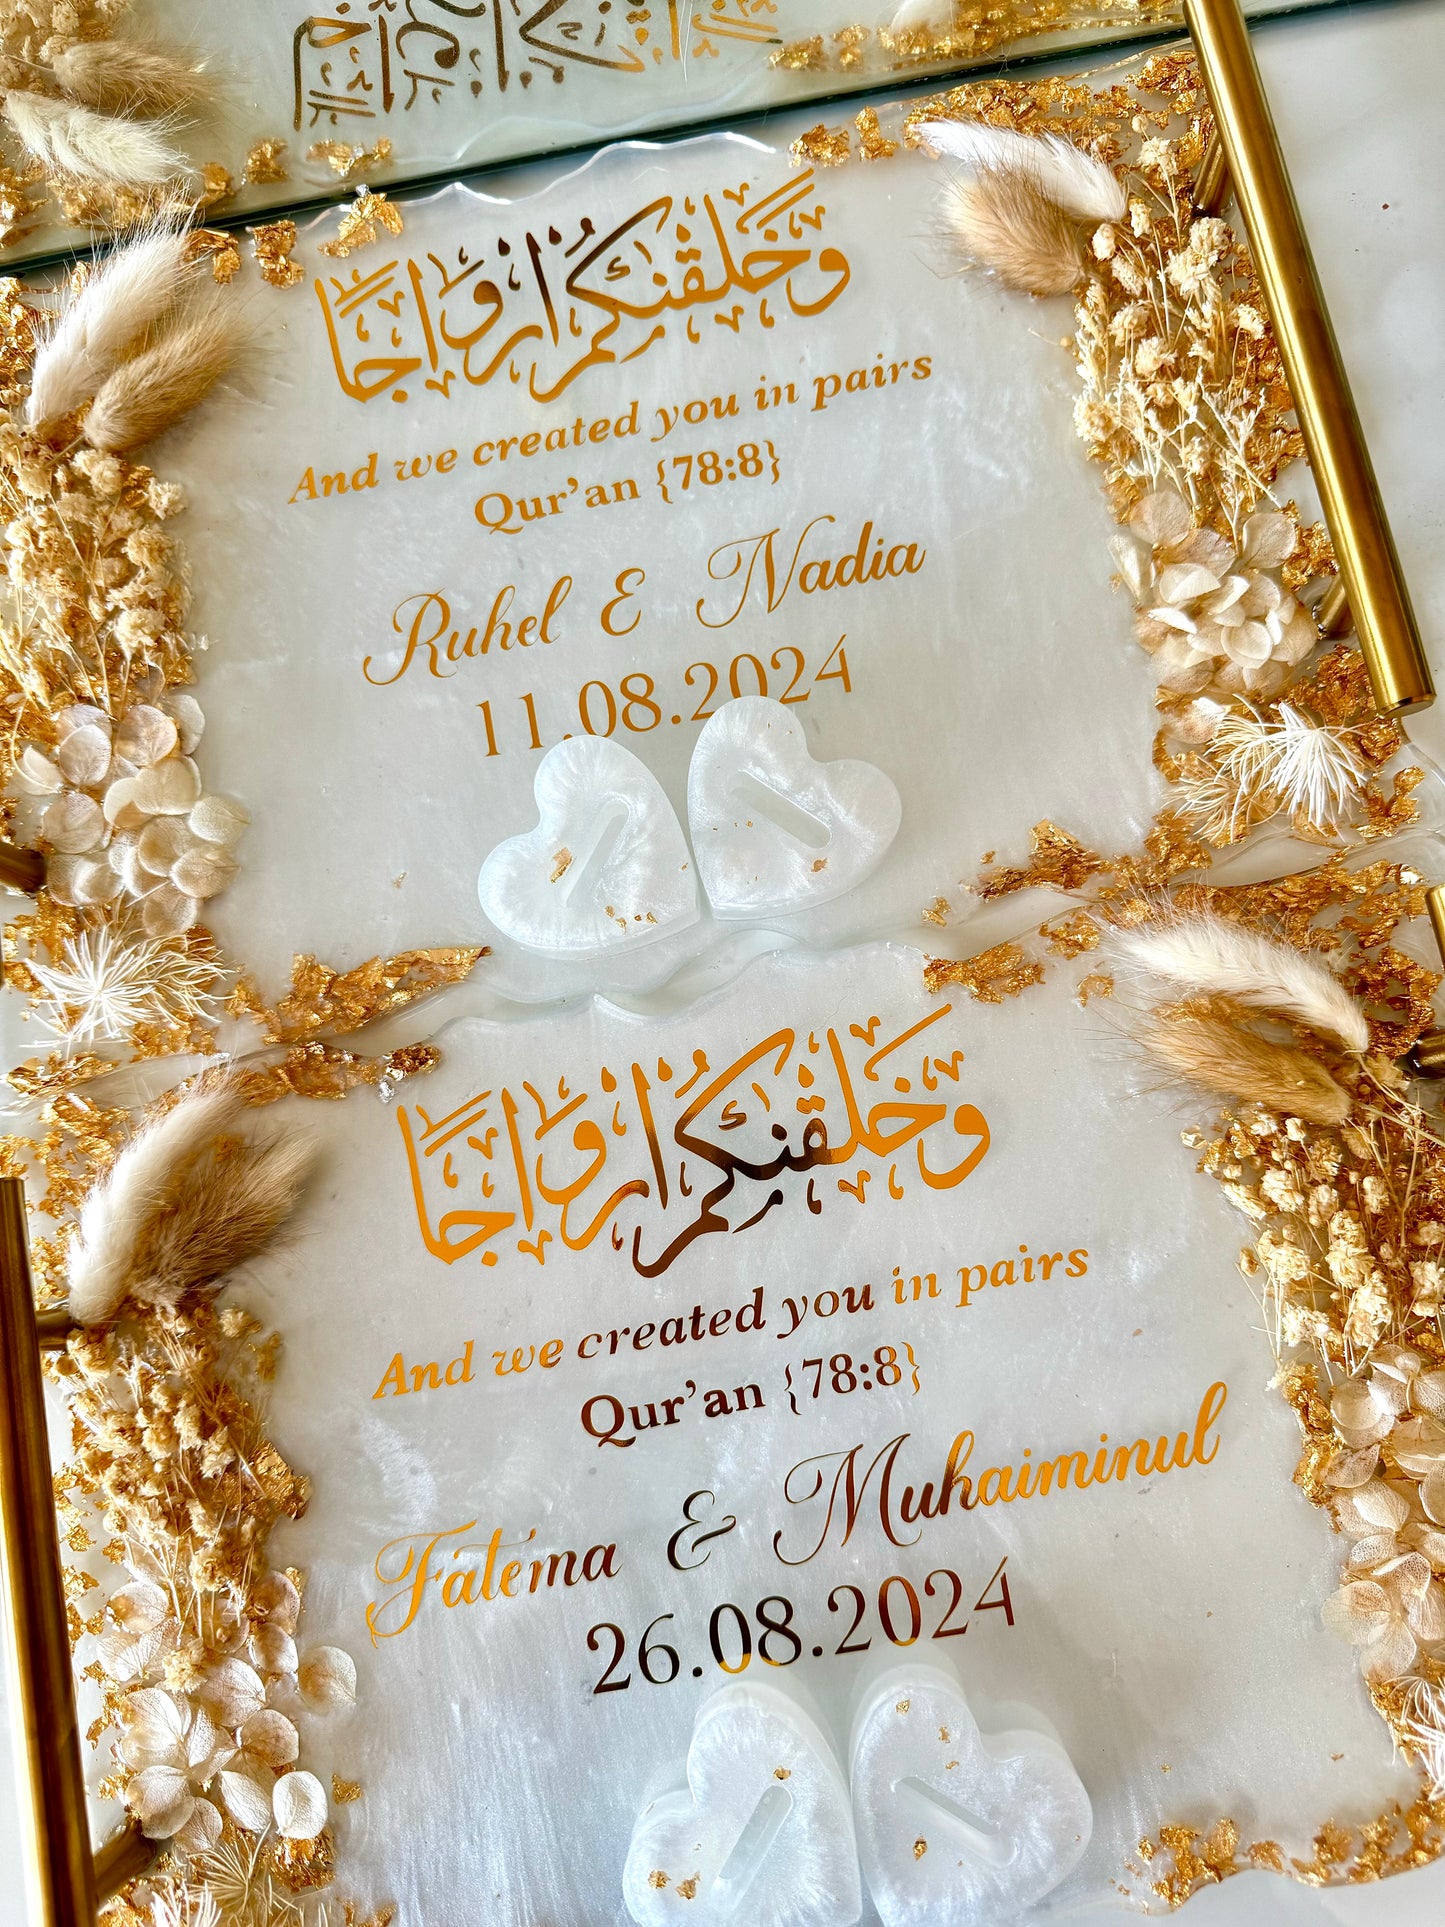 وَخَلَقْنَٰكُمْ أَزْوَاجًا
And we created you in pairs
Qur’an {78:8}
Ruhel & Nadia
11.08.2024
وَخَلَقْنَٰكُمْ أَزْوَاجًا
And we created you in pairs
Qur’an {78:8}
Fatema & Muhaiminul
26.08.2024